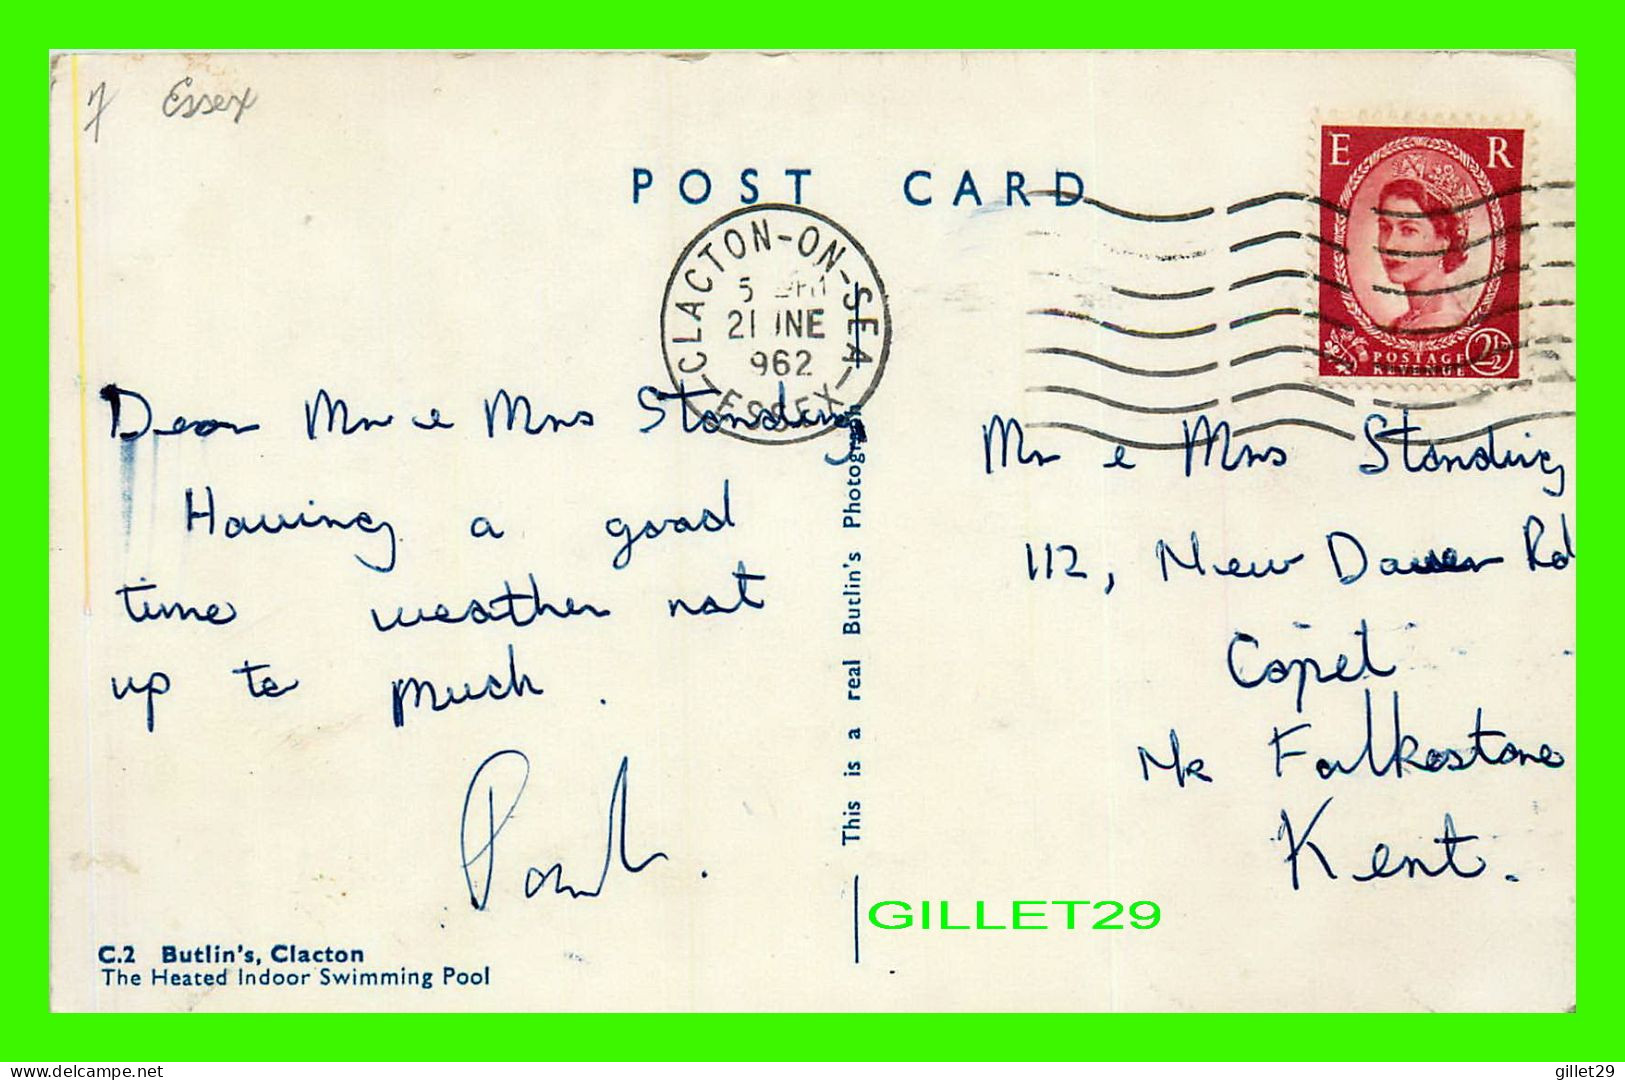 7 Essex
POST CARD
E R
POSTAGE
REVENUE
2½
CLACTON-ON-SEA
21 JNE
962
ESSEX
Dear Mr & Mrs Standing
Having a good
time weather not
up to much.
Paul.
C.2 Butlin's, Clacton
The Heated Indoor Swimming Pool
This is a real Butlin's Photograph
Mr & Mrs Standing
112, New Dover Rd
Capel
Nr Folkestone
Kent.
GILLET29
delcampe.net
gillet29